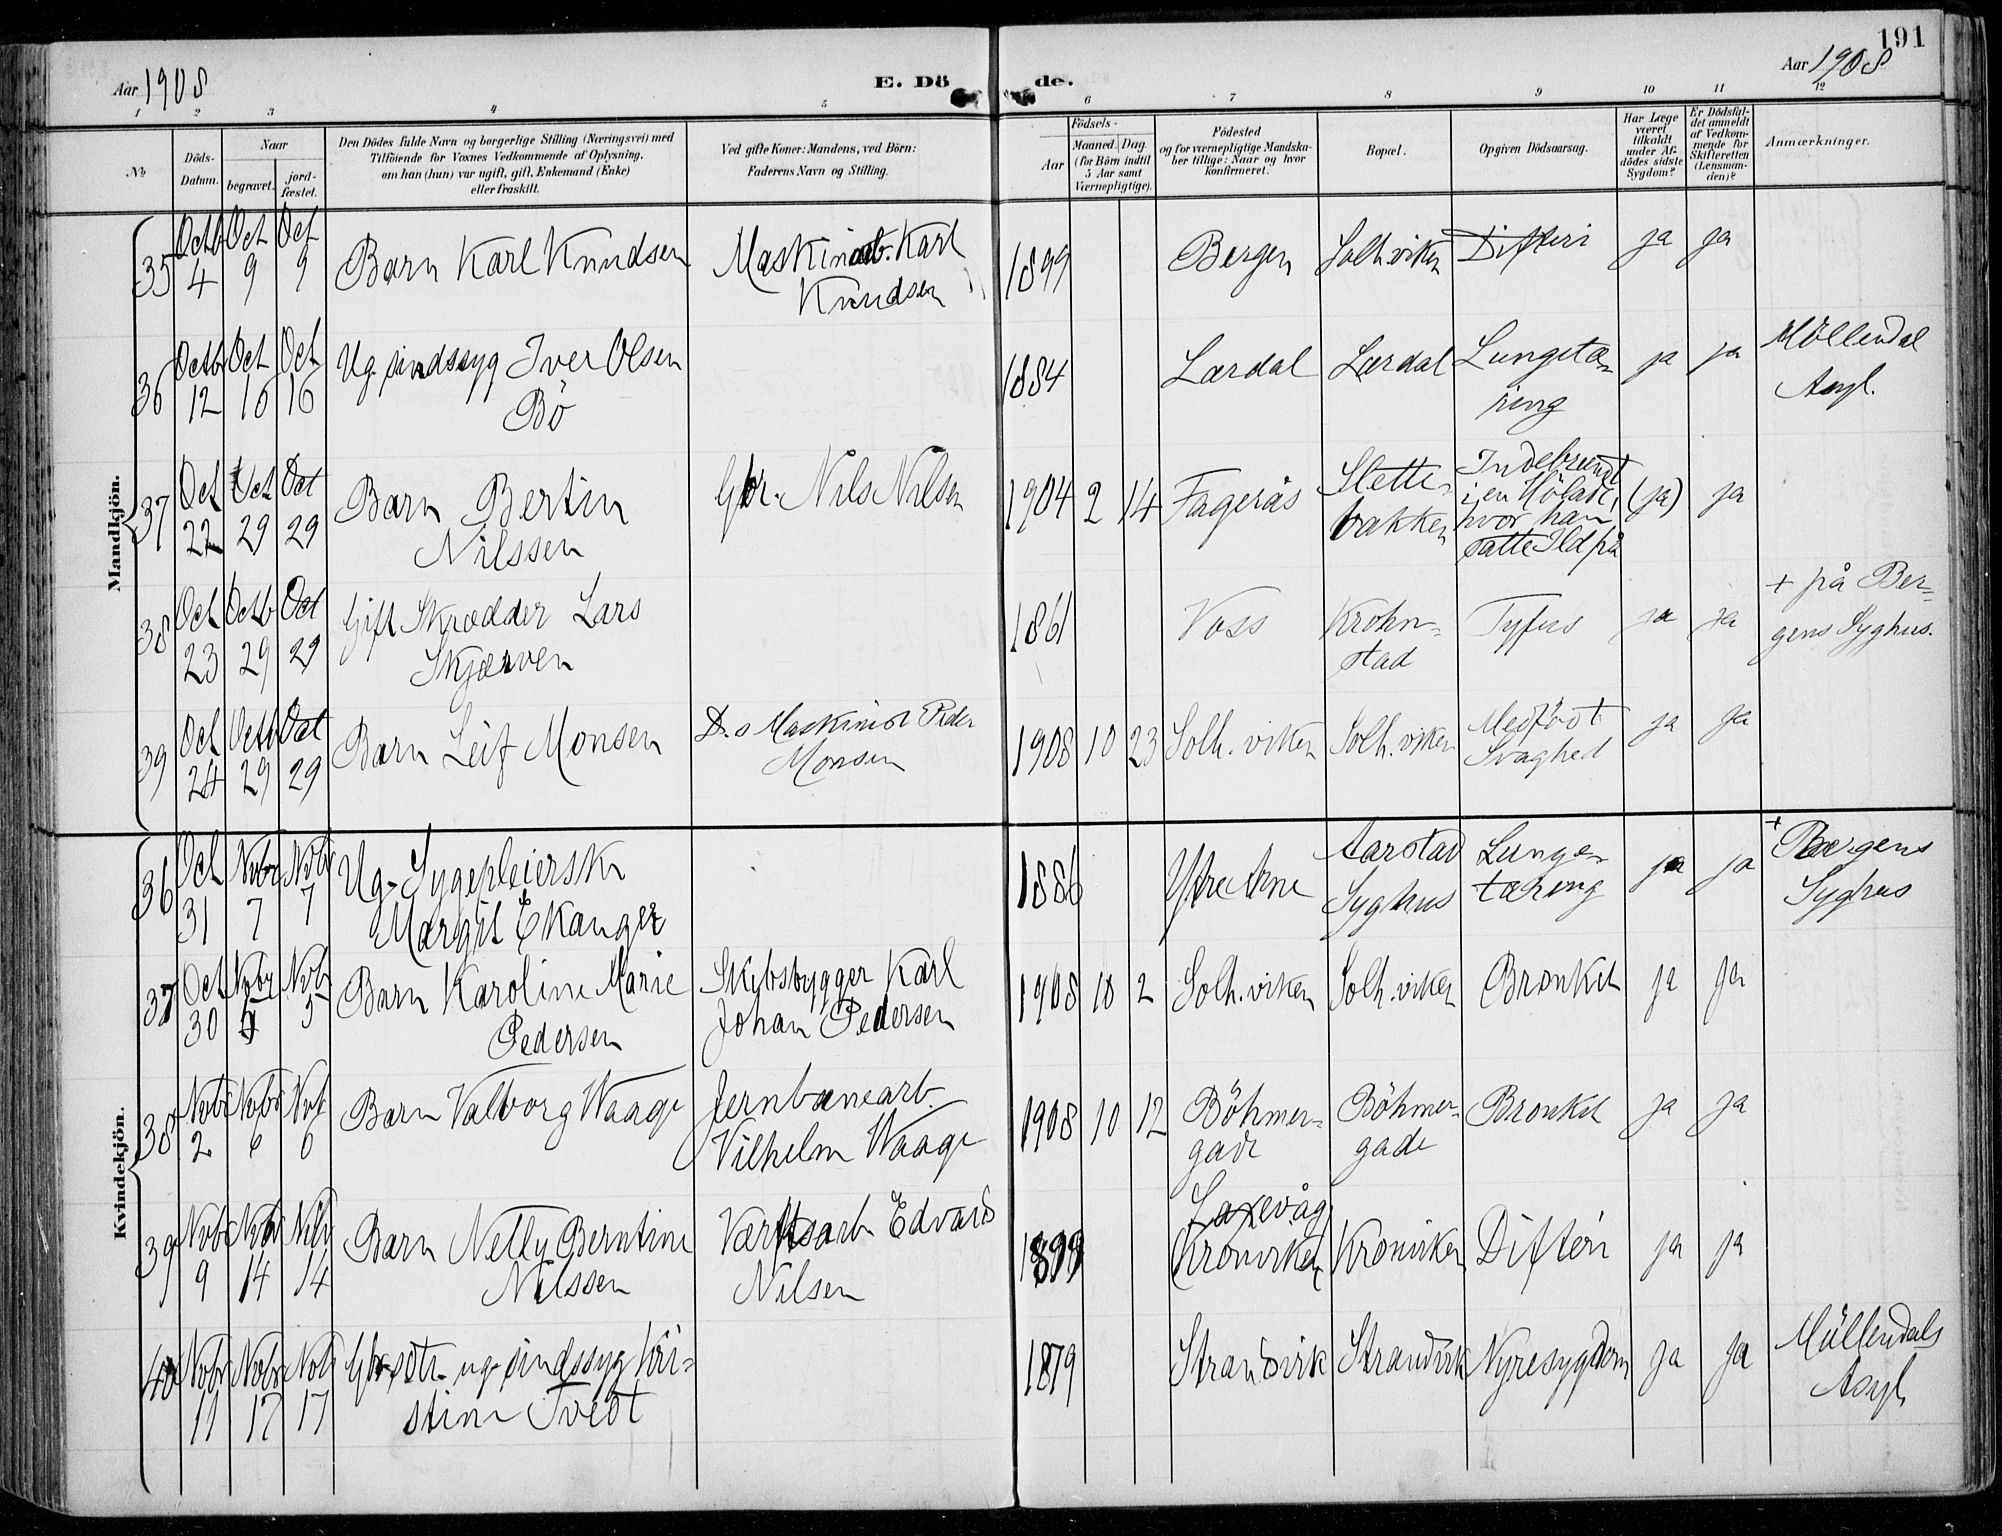 191
Aar 1908
E. Döde.
Aar 1908
1 2 3 4 5 6 7 8 9 10 11 12
No
Döds-
Datum.
Naar
begravet.
jord-
fæstet.
Den Dödes fulde Navn og borgerlige Stilling (Næringsvei) med
Tilföiende for Voxnes Vedkommende af Oplysning,
om han (hun) var ugift, gift, Enkemand (Enke)
eller fraskilt.
Ved gifte Koner: Mandens, ved Börn:
Faderens Navn og Stilling.
Födsels-
Aar
Maaned. Dag.
(for Börn indtil
5 Aar samt
Værnepligtige).
Födested
og for værnepligtige Mandska-
ber tillige: Naar og hvor
konfirmeret.
Bopæl.
Opgiven Dödsaarsag.
Har Læge
været
tilkaldt
under Af-
dödes sidste
Sygdom?
Er Dödsfal-
det anmeldt
af Vedkom-
mende for
Skifteretten
(Lensman-
den)?
Anmærkninger.
Mandkjön.
35 Octb 4 Oct 9 Oct 9 Barn Karl Knudsen Maskinarb. Karl
Knudsen
1899 Bergen Solh.viken Difteri ja ja
36 Octb 12 Oct 16 Oct 16 Ug. sindssyg Iver Olsen
Bö
1884 Lærdal Lærdal Lungetæ-
ring
ja ja Möllendal
Asyl.
37 Oct 22 Oct 29 Oct 29 Barn Bertin
Nilssen
Gbr. Nils Nilsen
1904 2 14 Fagerås Slette-
bakken
Indebrændt
i en Hölade,
hvor han
satte Ild på
(ja) ja
38 Oct 23 Octb 29 Oct 29 Gift Skrædder Lars
Skjerven
1861 Voss Krohn-
stad
Tyfus ja ja + på Ber-
gens Syghus.
39 Oct 24 Octb 29 Oct 29 Barn Leif Monsen D.s Maskinist Peder
Monsen
1908 10 23 Solh.viken Solh.viken Medfödt
Svaghed
ja ja
Kvindekjön.
36 Oct 31 Novbr 7 Novbr 7 Ug. Sygepleierske
Margit Ekanger
1886 Ytre Arne Aarstad
Syghus
Lunge-
tæring
ja ja + Bergens
Syghus
37 Oct 30 Novbr 5 Novb 5 Barn Karoline Marie
Pedersen
Skibsbygger Karl
Johan Pedersen
1908 10 2 Solh.viken Solh.viken Bronkit ja ja
38 Novb 2 Novbr 6 Novb 6 Barn Valborg Waage Jernbanearb.
Vilhelm Waage
1908 10 12 Böhmer-
gade
Böhmer-
gade
Bronkit ja ja
39 Novb 9 Novb 14 Novb 14 Barn Nelly Berntine
Nilssen
Værftsarb Edvard
Nilsen
1899 Laxevåg
Kronviken
Kronviken Difteri ja ja
40 Novbr 11 Novbr 17 Novb 17 Gbrsdtr. ug. sindssyg Kri-
stine Tvedt
1879 Strandvik Strandvik Nyresygdom ja ja Möllendals
Asyl